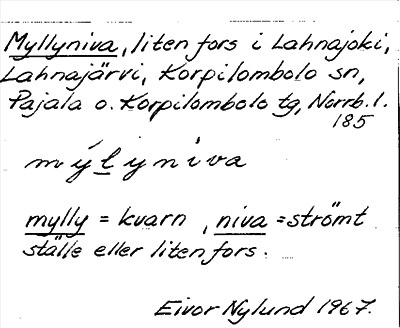 Myllyniva, liten fors i Lahnajoki,
Lahnajärvi, Korpilombolo sn,
Pajala o. Korpilombolo tg, Norrb. l.
185
mýl̲yniva
mylly = kvarn, niva = strömt
ställe eller liten fors.
Eivor Nylund 1967.